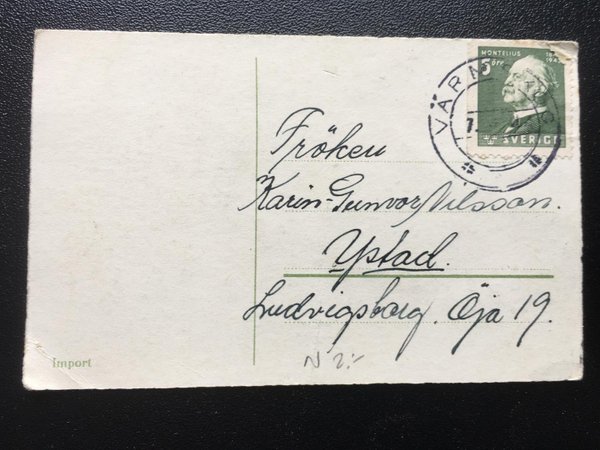 MONTELIUS
5 öre
SVERIGE
VÄRM
Fröken
Karin-Gunvor Nilsson.
Ystad.
Ludvigsborg. Öja 19.
Import
N 2:-